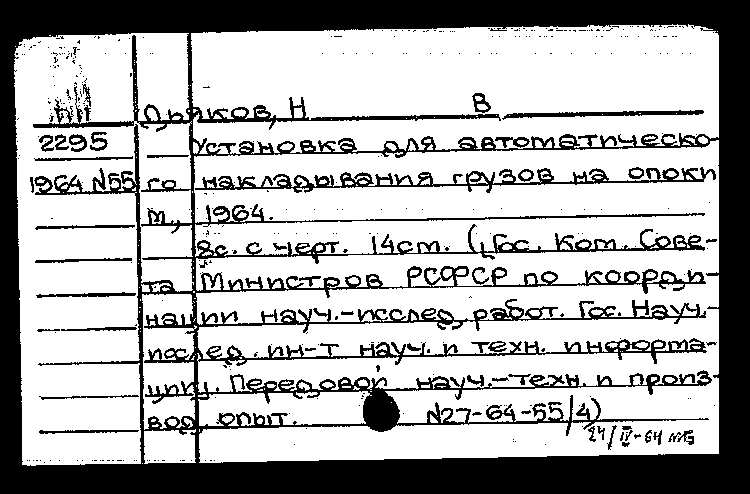 Дьяков, Н В
2295 Установка для автоматическо-
1964 №55 го накладывания грузов на опоки
М., 1964.
8с. с черт. 14см. (Гос. Ком. Сове-
та Министров РСФСР по коорди-
нации науч.-исслед. работ. Гос. Науч.-
исслед. ин-т науч. и техн. информа-
ции. Передовой науч.-техн. и произ-
вод. опыт. №27-64-55/4)
24/IV-64